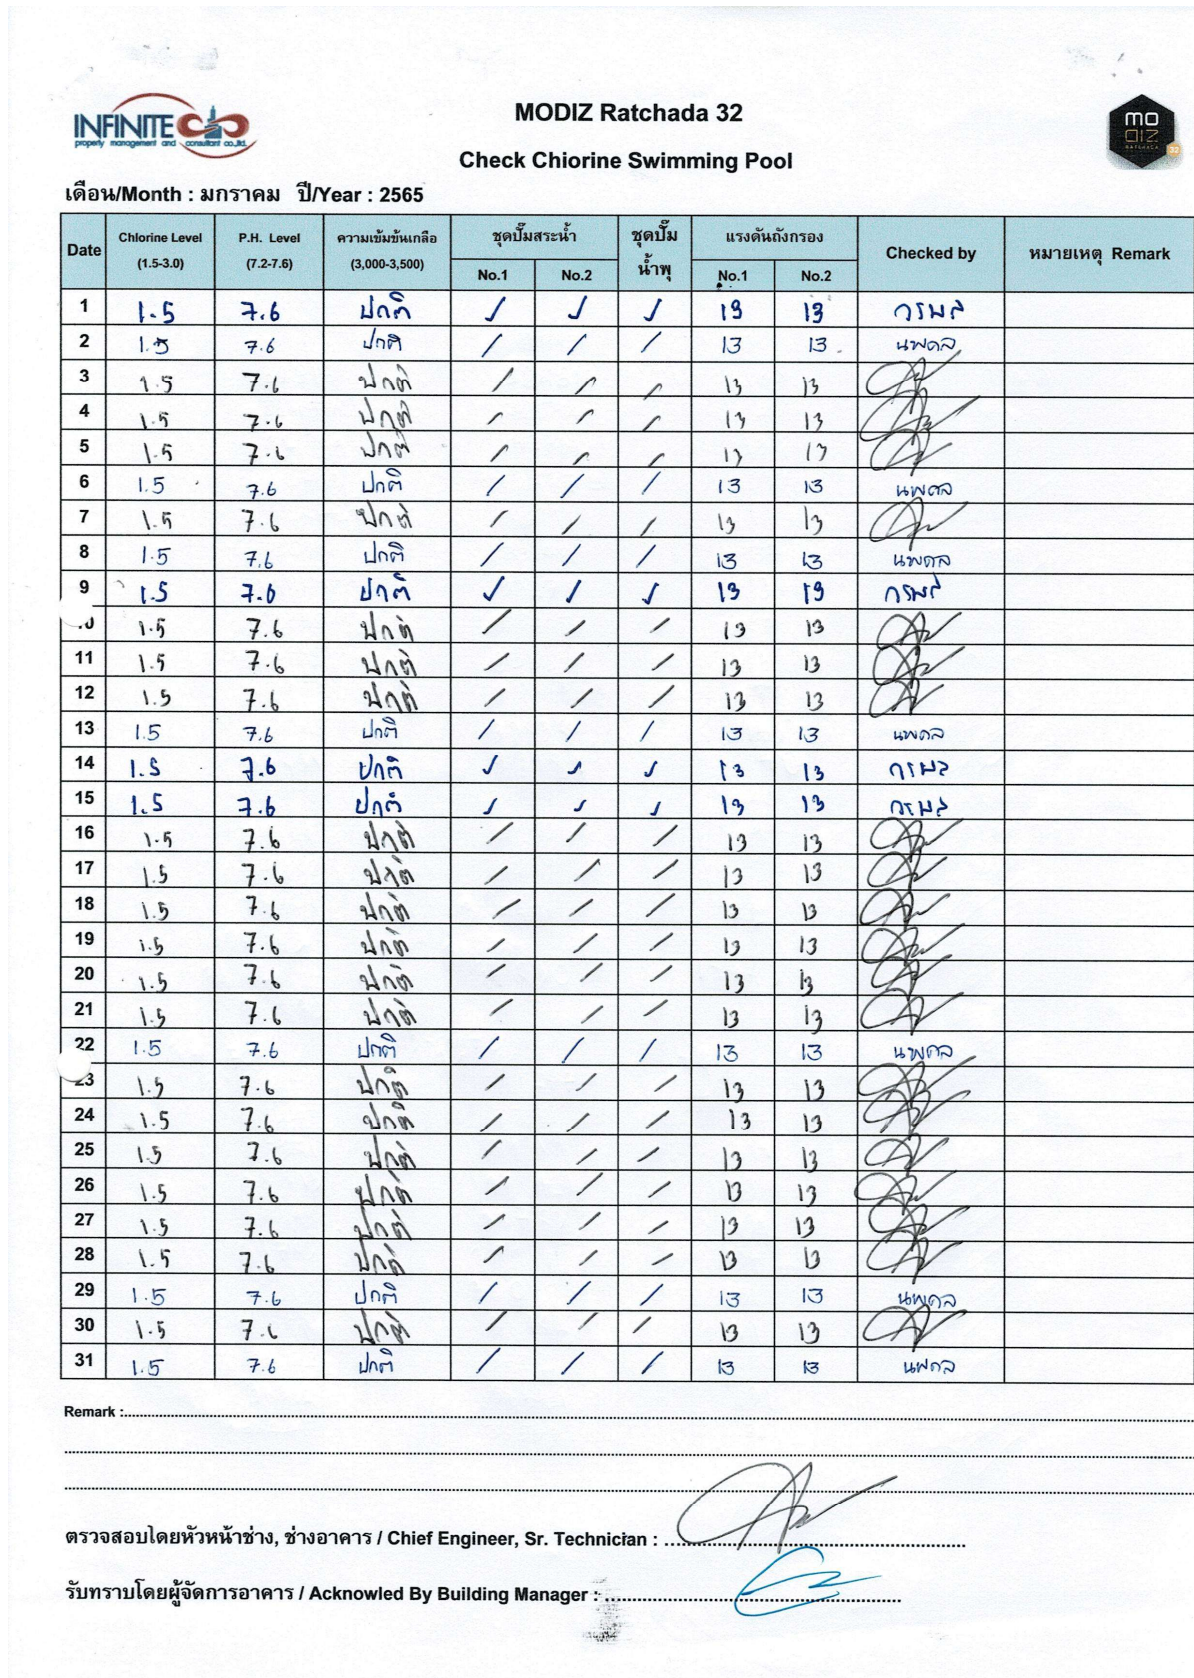 INFINITE
property management and consultant co.,ltd.
MODIZ Ratchada 32
mo
diz
RATCHADA
32
Check Chiorine Swimming Pool
เดือน/Month : มกราคม ปี/Year : 2565
Date Chlorine Level (1.5-3.0) P.H. Level (7.2-7.6) ความเข้มข้นเกลือ (3,000-3,500) ชุดปั๊มสระน้ำ ชุดปั๊มน้ำพุ แรงดันถังกรอง Checked by หมายเหตุ Remark
No.1 No.2 No.1 No.2
1 1.5 7.6 ปกติ ✓ ✓ ✓ 13 13 กรพล
2 1.5 7.6 ปกติ / / / 13 13 นพดล
3 1.5 7.6 ปกติ / / / 13 13
4 1.5 7.6 ปกติ / / / 13 13
5 1.5 7.6 ปกติ / / / 13 13
6 1.5 7.6 ปกติ / / / 13 13 นพดล
7 1.5 7.6 ปกติ / / / 13 13
8 1.5 7.6 ปกติ / / / 13 13 นพดล
9 1.5 7.6 ปกติ ✓ ✓ ✓ 13 13 กรพล
10 1.5 7.6 ปกติ / / / 13 13
11 1.5 7.6 ปกติ / / / 13 13
12 1.5 7.6 ปกติ / / / 13 13
13 1.5 7.6 ปกติ / / / 13 13 นพดล
14 1.5 7.6 ปกติ ✓ ✓ ✓ 13 13 กรพล
15 1.5 7.6 ปกติ ✓ ✓ ✓ 13 13 กรพล
16 1.5 7.6 ปกติ / / / 13 13
17 1.5 7.6 ปกติ / / / 13 13
18 1.5 7.6 ปกติ / / / 13 13
19 1.5 7.6 ปกติ / / / 13 13
20 1.5 7.6 ปกติ / / / 13 13
21 1.5 7.6 ปกติ / / / 13 13
22 1.5 7.6 ปกติ / / / 13 13 นพดล
23 1.5 7.6 ปกติ / / / 13 13
24 1.5 7.6 ปกติ / / / 13 13
25 1.5 7.6 ปกติ / / / 13 13
26 1.5 7.6 ปกติ / / / 13 13
27 1.5 7.6 ปกติ / / / 13 13
28 1.5 7.6 ปกติ / / / 13 13
29 1.5 7.6 ปกติ / / / 13 13 นพดล
30 1.5 7.6 ปกติ / / / 13 13
31 1.5 7.6 ปกติ / / / 13 13 นพดล
Remark :
ตรวจสอบโดยหัวหน้าช่าง, ช่างอาคาร / Chief Engineer, Sr. Technician :
รับทราบโดยผู้จัดการอาคาร / Acknowled By Building Manager :